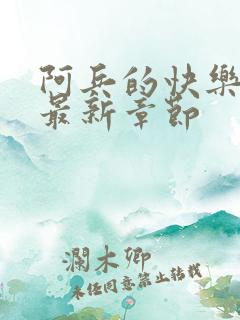 阿兵的快樂
最新章節
瀾木卿
未任同意禁止转载